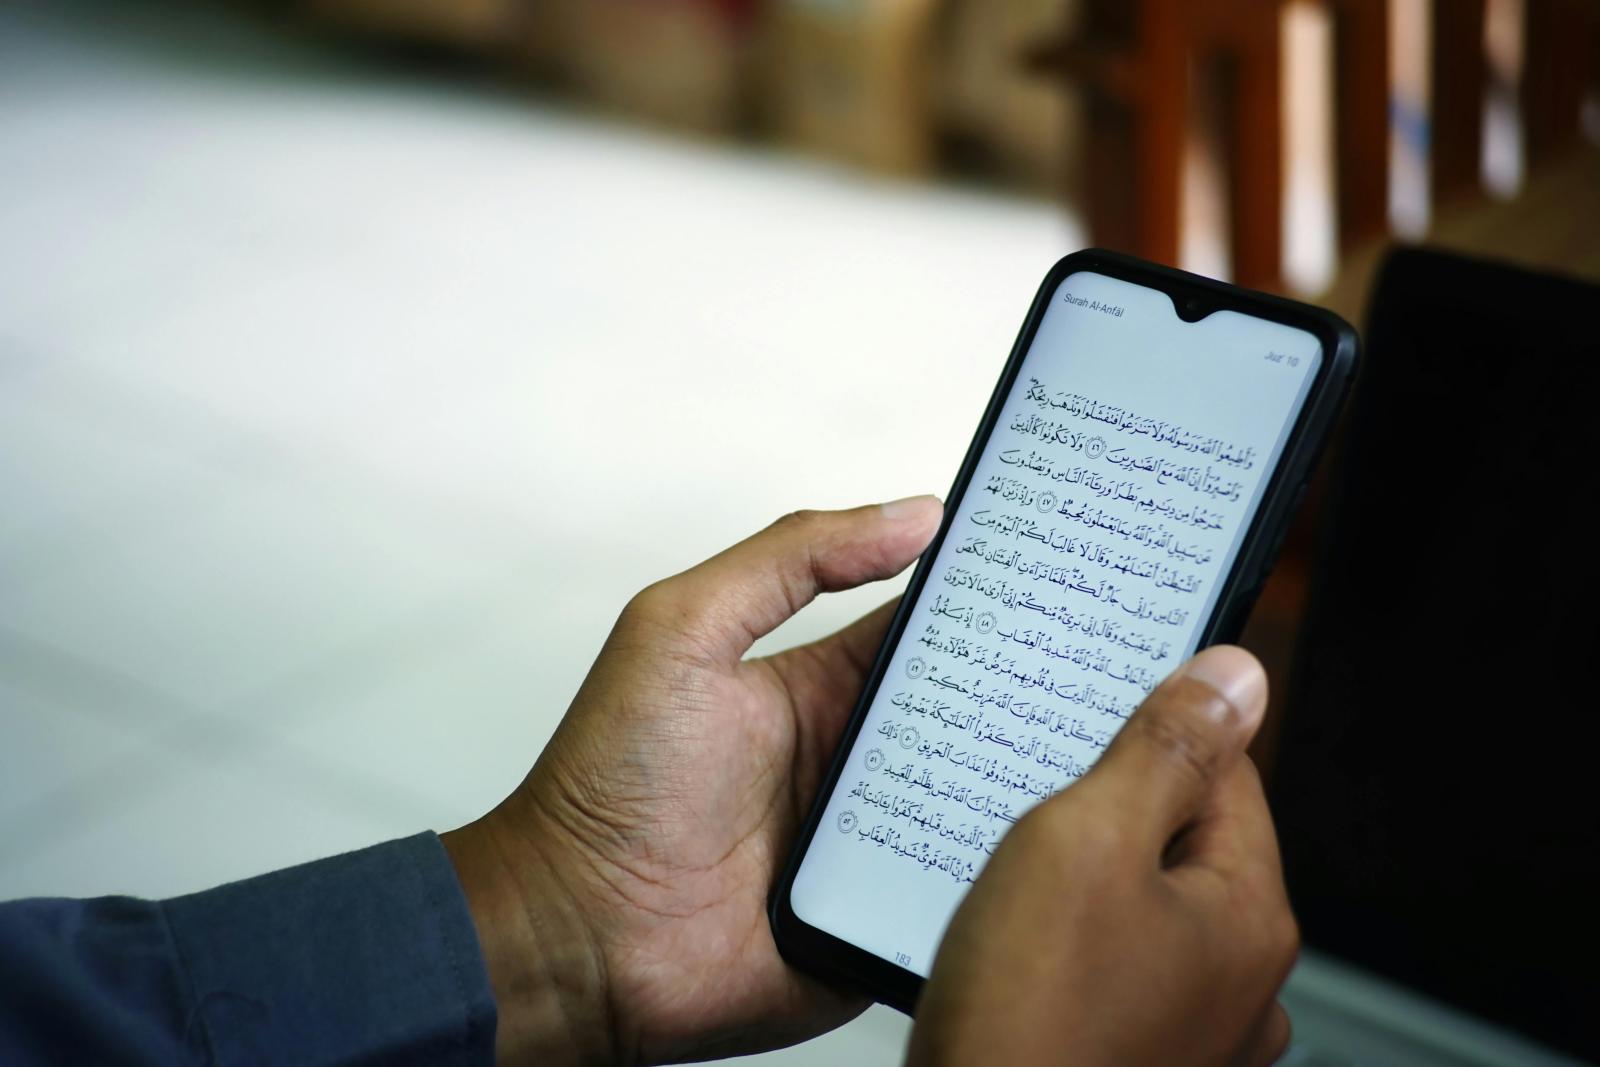 Surah Al-Anfāl
Juz' 10
وَأَطِيعُوا۟ ٱللَّهَ وَرَسُولَهُۥ وَلَا تَنَـٰزَعُوا۟ فَتَفْشَلُوا۟ وَتَذْهَبَ رِيحُكُمْ ۖ
وَٱصْبِرُوٓا۟ ۚ إِنَّ ٱللَّهَ مَعَ ٱلصَّـٰبِرِينَ ٤٦ وَلَا تَكُونُوا۟ كَٱلَّذِينَ
خَرَجُوا۟ مِن دِيَـٰرِهِم بَطَرًا وَرِئَآءَ ٱلنَّاسِ وَيَصُدُّونَ
عَن سَبِيلِ ٱللَّهِ ۚ وَٱللَّهُ بِمَا يَعْمَلُونَ مُحِيطٌ ٤٧ وَإِذْ زَيَّنَ لَهُمُ
ٱلشَّيْطَـٰنُ أَعْمَـٰلَهُمْ وَقَالَ لَا غَالِبَ لَكُمُ ٱلْيَوْمَ مِنَ
ٱلنَّاسِ وَإِنِّى جَارٌ لَّكُمْ ۖ فَلَمَّا تَرَآءَتِ ٱلْفِئَتَانِ نَكَصَ
عَلَىٰ عَقِبَيْهِ وَقَالَ إِنِّى بَرِىٓءٌ مِّنكُمْ إِنِّىٓ أَرَىٰ مَا لَا تَرَوْنَ
إِنِّىٓ أَخَافُ ٱللَّهَ ۚ وَٱللَّهُ شَدِيدُ ٱلْعِقَابِ ٤٨ إِذْ يَقُولُ
وَٱلَّذِينَ فِى قُلُوبِهِم مَّرَضٌ غَرَّ هَـٰٓؤُلَآءِ دِينُهُمْ ۗ
عَلَى ٱللَّهِ فَإِنَّ ٱللَّهَ عَزِيزٌ حَكِيمٌ ٤٩
إِذْ يَتَوَفَّى ٱلَّذِينَ كَفَرُوا۟ ۙ ٱلْمَلَـٰٓئِكَةُ يَضْرِبُونَ
وَذُوقُوا۟ عَذَابَ ٱلْحَرِيقِ ٥٠ ذَٰلِكَ
وَأَنَّ ٱللَّهَ لَيْسَ بِظَلَّـٰمٍ لِّلْعَبِيدِ ٥١
وَٱلَّذِينَ مِن قَبْلِهِمْ ۚ كَفَرُوا۟ بِـَٔايَـٰتِ ٱللَّهِ
إِنَّ ٱللَّهَ قَوِىٌّ شَدِيدُ ٱلْعِقَابِ ٥٢
183